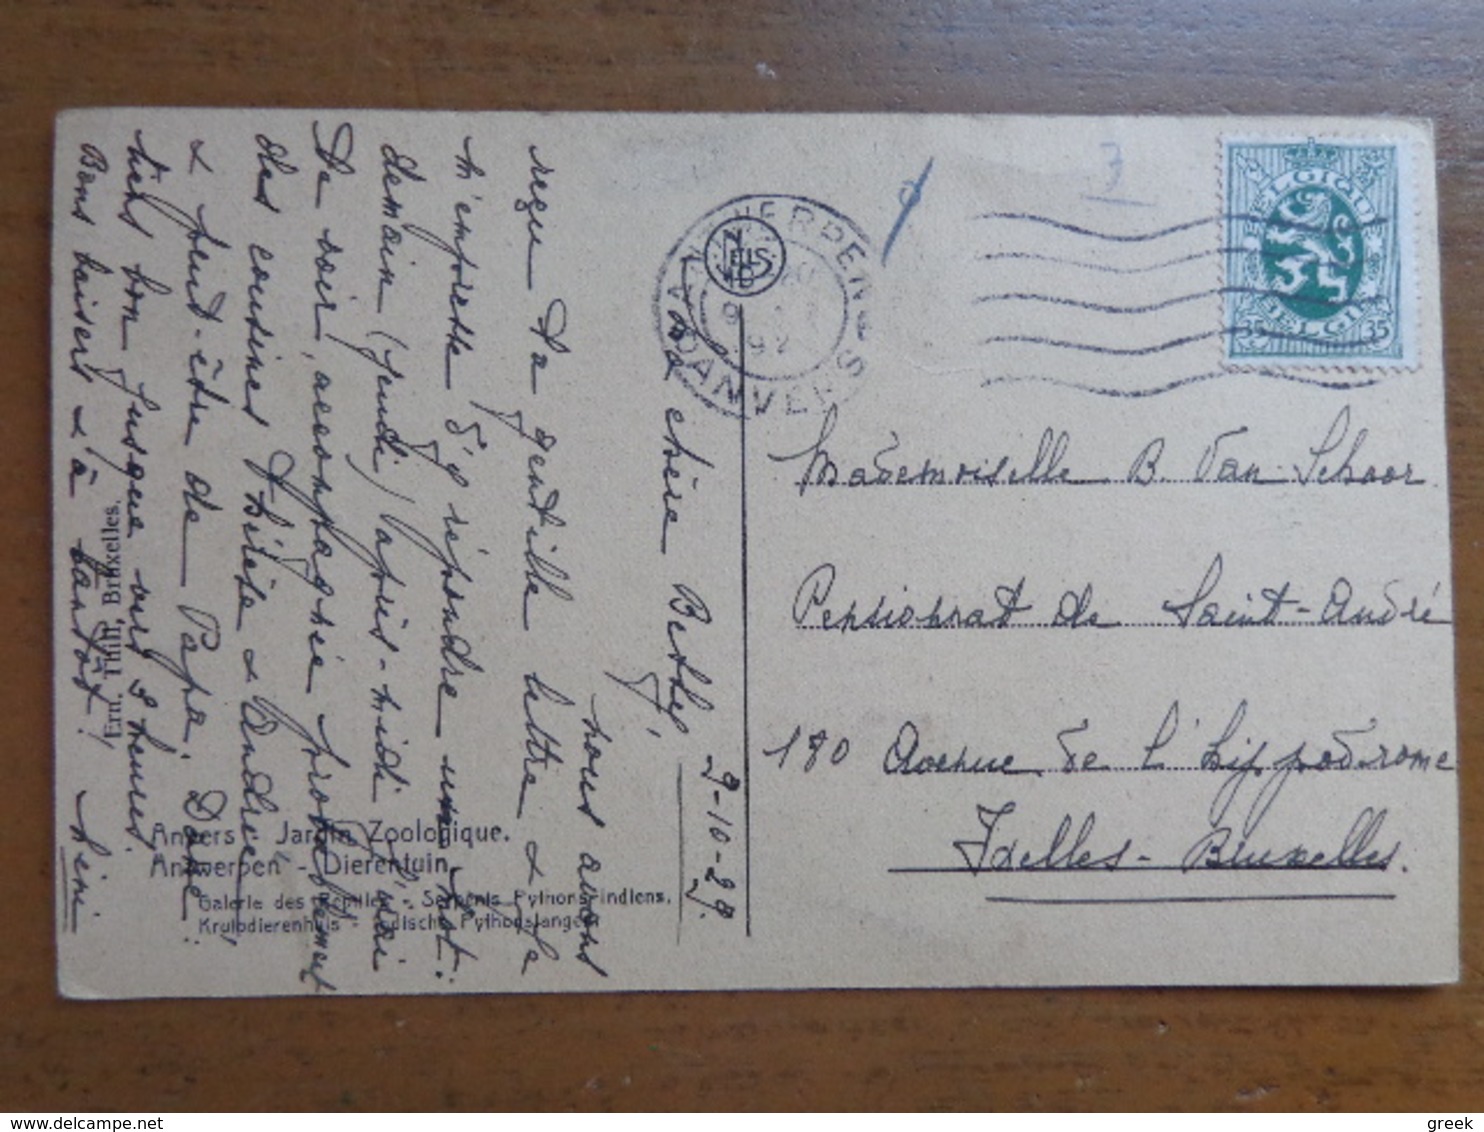 9-10-29.
Ma chère Bethy,
nous avons
reçu ta gentille lettre & je
m'empresse d'y répondre un mot.
demain (jeudi) après-midi j'irai
te voir, accompagnée probablement
des cousines Thérèse & Andrée
& peut-être de Papa. Donc,
tiens bon jusque vers 2 heures.
Bons baisers & à tantôt!
NELS
ANTWERPEN
ANVERS
BELGIQUE
BELGIE
35 35
Mademoiselle B. Van Schoor
Pensionnat de Saint-André
180 Avenue de l'hippodrome
Ixelles-Bruxelles.
Ern. Thill, Bruxelles.
Anvers - Jardin Zoologique.
Antwerpen - Dierentuin.
Galerie des Reptiles - Serpents Pythons indiens.
Kruipdierenhuis - Indische Pythonslangen
greek